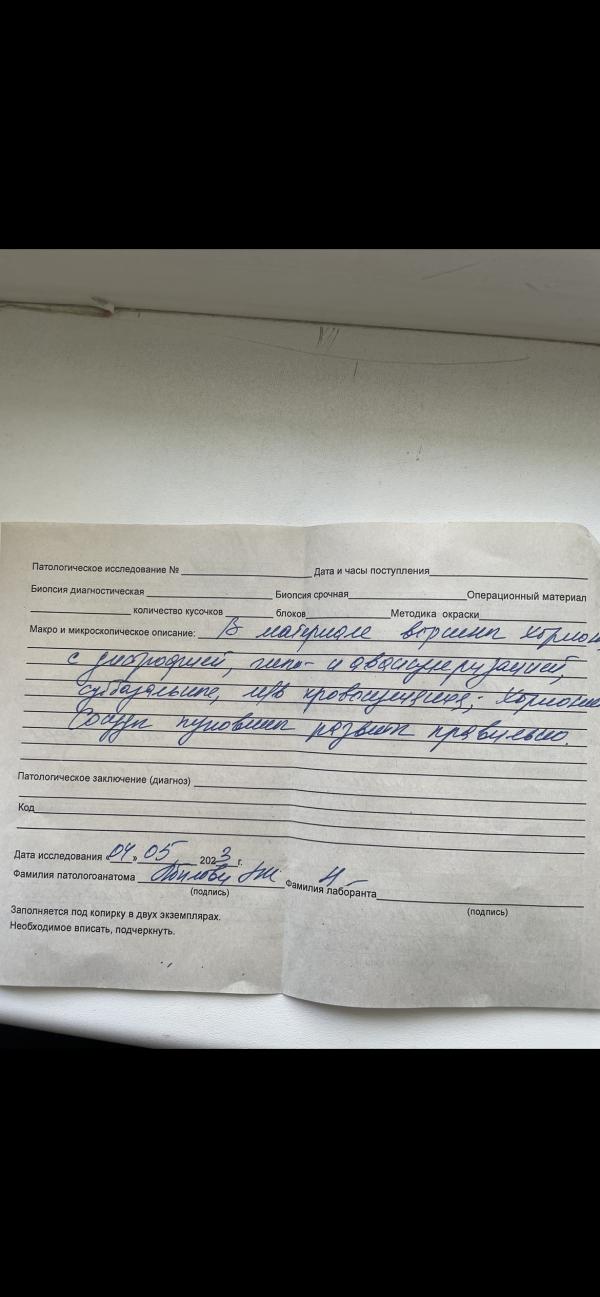 Патологическое исследование № Дата и часы поступления
Биопсия диагностическая Биопсия срочная Операционный материал
количество кусочков блоков Методика окраски
Макро и микроскопическое описание: В материале ворсины
с дистрофией, гипо- и аваскуляризацией,
кровоизлияния;
Сосуды пуповины развиты правильно.
Патологическое заключение (диагноз)
Код
Дата исследования «04» 05 2023 г.
Фамилия патологоанатома Фамилия лаборанта
(подпись)
(подпись)
Заполняется под копирку в двух экземплярах.
Необходимое вписать, подчеркнуть.